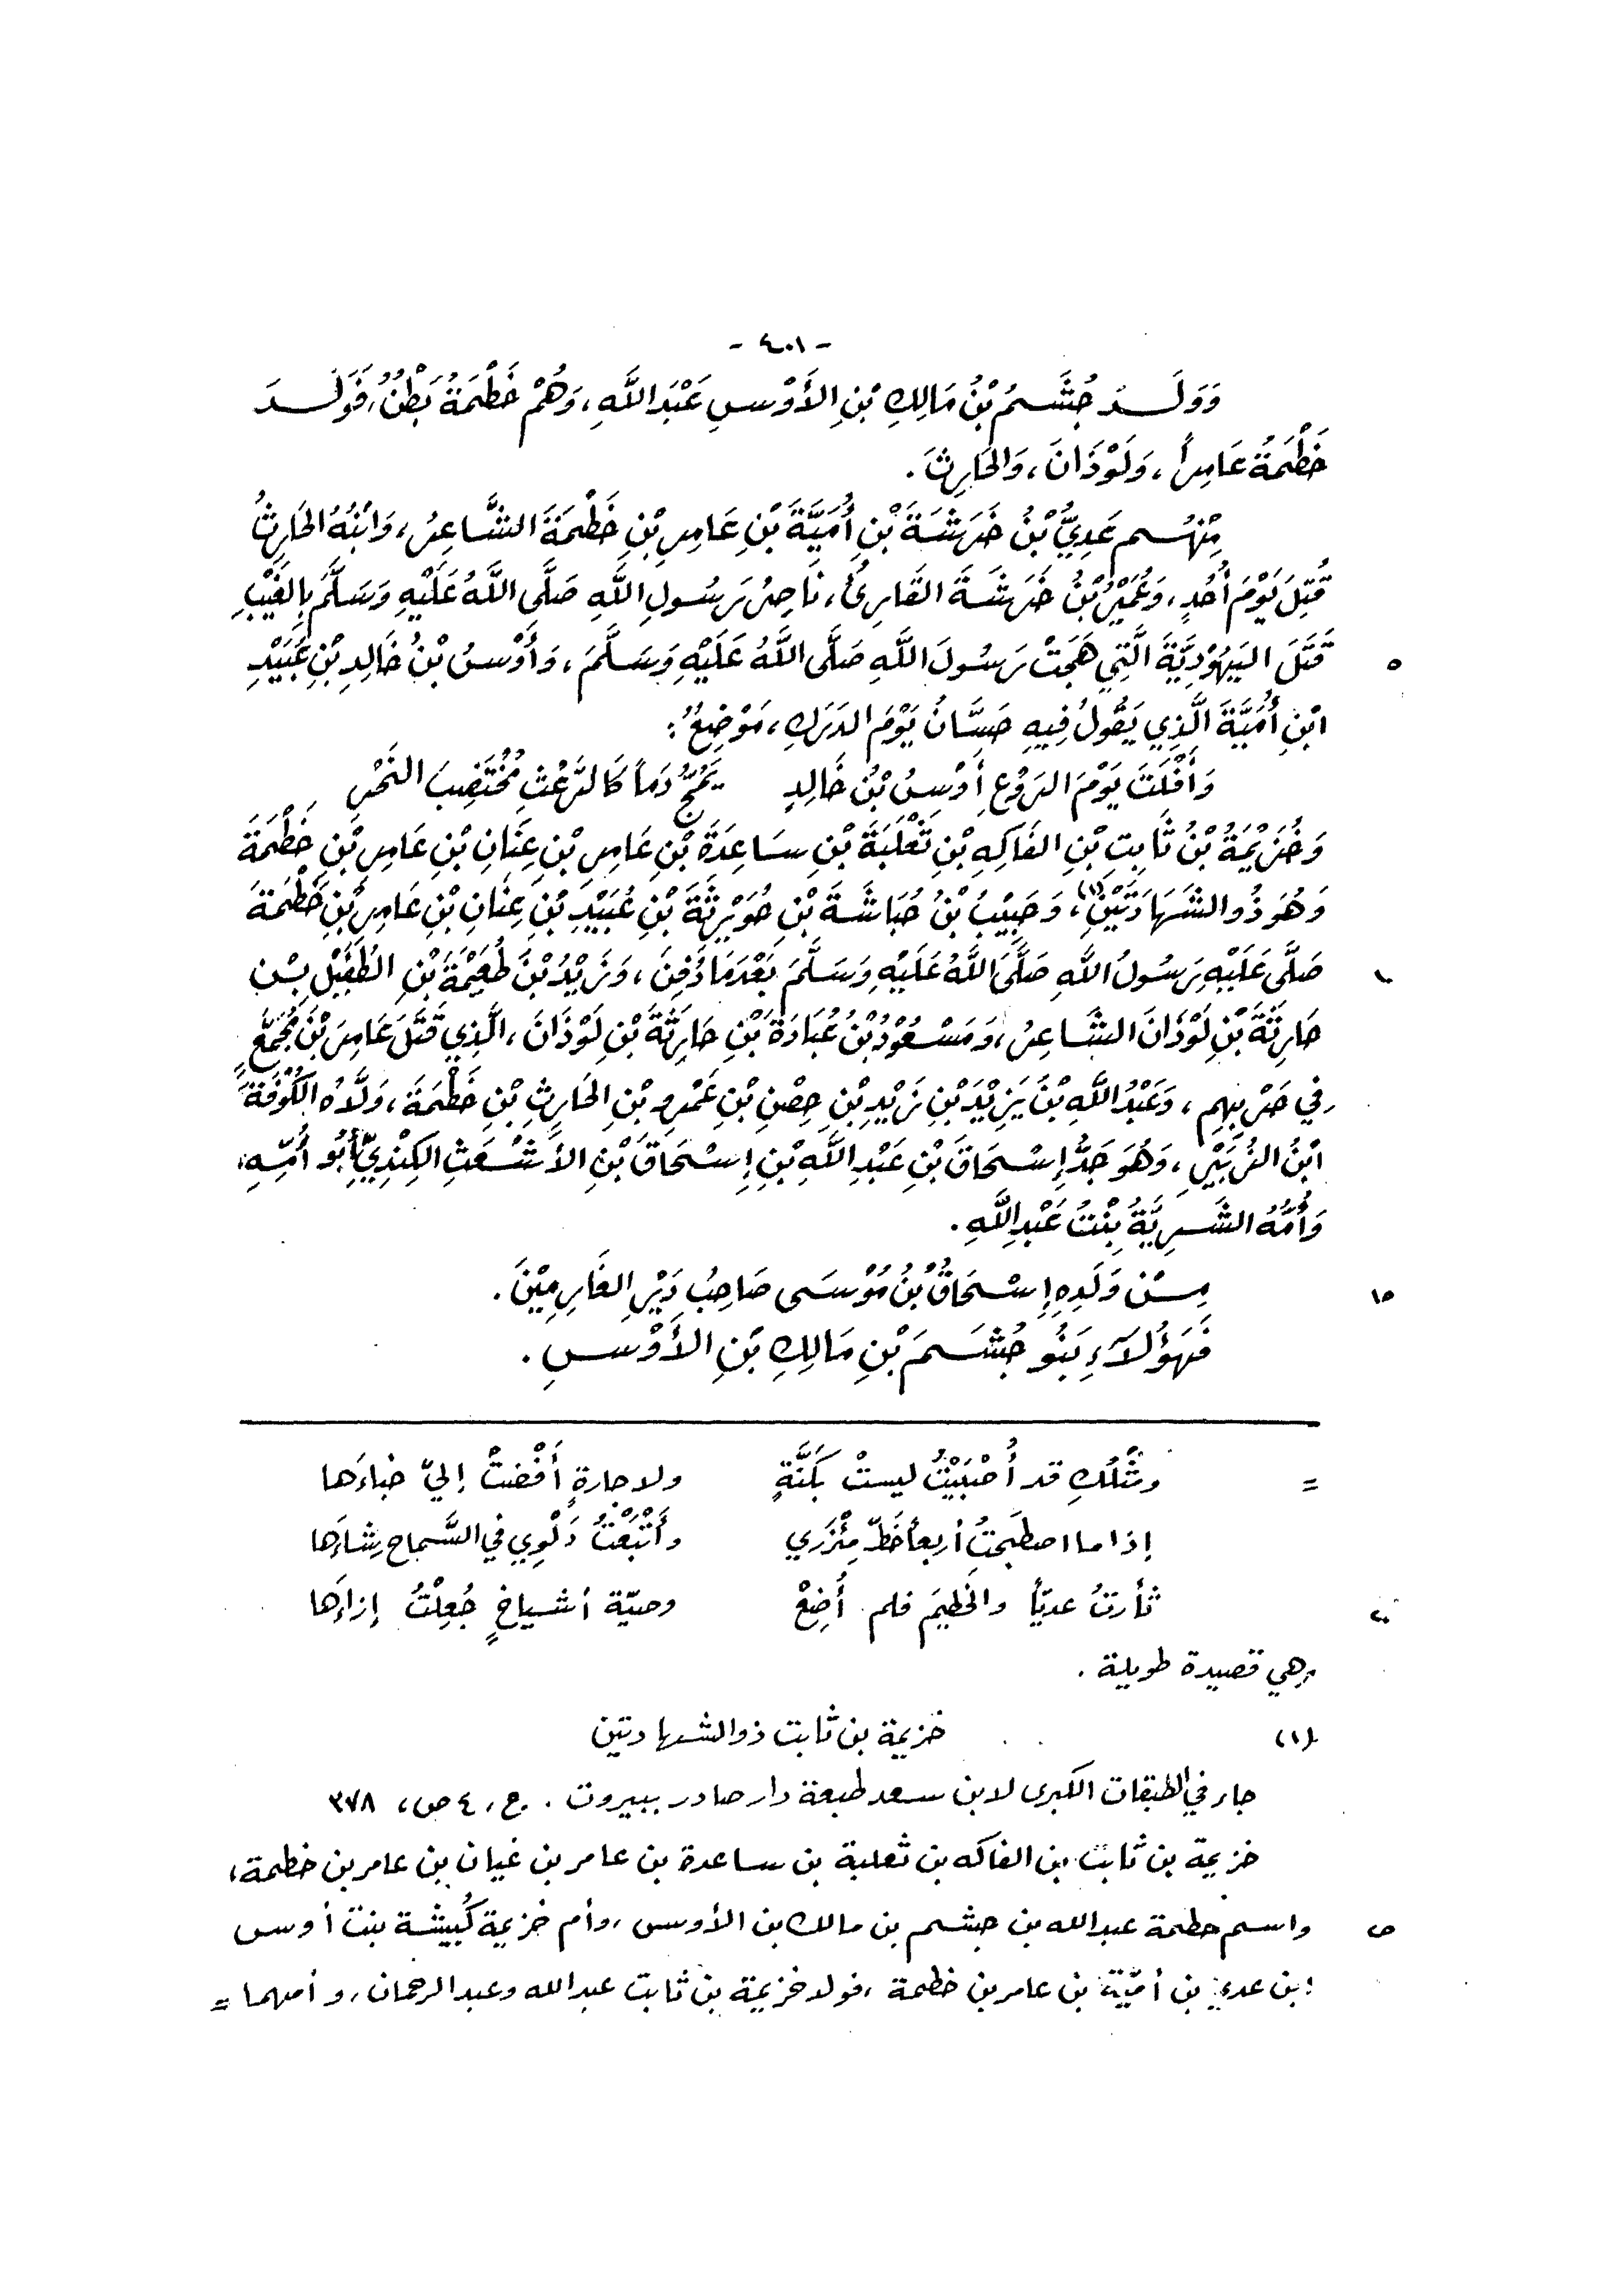 - ٤٠١ -
وَوَلَدَ جُشَمُ بْنُ مَالِكِ بْنِ الأَوْسِ عَبْدَ اللَّهِ، وَهُمْ خَطْمَةُ بَطْنٌ، فَوَلَدَ
خَطْمَةُ عَامِراً، وَلَوْذَانَ، وَالحَارِثَ.
مِنْهُم عَدِيُّ بْنُ خَرَشَةَ بْنِ أُمَيَّةَ بْنِ عَامِرِ بْنِ خَطْمَةَ الشَّاعِرُ، وَابْنُهُ الحَارِثُ
قُتِلَ يَوْمَ أُحُدٍ، وَعُمَيْرُ بْنُ خَرَشَةَ القَارِئُ، نَاصِرُ رَسُولِ اللَّهِ صَلَّى اللَّهُ عَلَيْهِ وَسَلَّمَ بِالغَيْبِ
٥ قَتَلَ اليَهُوْدِيَّةَ الَّتِي هَجَتْ رَسُولَ اللَّهِ صَلَّى اللَّهُ عَلَيْهِ وَسَلَّمَ، وَأَوْسُ بْنُ خَالِدِ بْنِ عُبَيْدِ
ابْنِ أُمَيَّةَ الَّذِي يَقُولُ فِيهِ حَسَّانُ يَوْمَ الدَرَكِ، مَوْضِعٌ:
وَأَفْلَتَ يَوْمَ الرَوْعِ أَوْسُ بْنُ خَالِدٍ يَمُجُّ دَماً كَالرَعْثِ مُخْتَضِبَ النَحْرِ
وَخُزَيْمَةُ بْنُ ثَابِتِ بْنِ الفَاكِهِ بْنِ ثَعْلَبَةَ بْنِ سَاعِدَةَ بْنِ عَامِرِ بْنِ عِنَانِ بْنِ عَامِرِ بْنِ خَطْمَةَ
وَهُوَ ذُو الشَهَادَتَيْنِ(١)، وَحَبِيْبُ بْنُ حُبَاشَةَ بْنِ حُوَيْرِثَةَ بْنِ عُبَيْدِ بْنِ عِنَانِ بْنِ عَامِرِ بْنِ خَطْمَةَ
١٠ صَلَّى عَلَيْهِ رَسُولُ اللَّهِ صَلَّى اللَّهُ عَلَيْهِ وَسَلَّمَ بَعْدَمَا دُفِنَ، وَزَيْدُ بْنُ طُعَيْمَةَ بْنِ الطُفَيْلِ بْنِ
حَارِثَةَ بْنِ لَوْذَانَ الشَّاعِرُ، وَمَسْعُوْدُ بْنُ عُبَادَةَ بْنِ حَارِثَةَ بْنِ لَوْذَانَ، الَّذِي قَتَلَ عَامِرَ بْنَ مُجَمِّعٍ
في حَرْبِهِمِ، وَعَبْدُ اللَّهِ بْنُ يَزِيْدَ بْنِ زَيْدِ بْنِ حِصْنِ بْنِ عَمْرِو بْنِ الحَارِثِ بْنِ خَطْمَةَ، وَلَّاهُ الكُوْفَةَ
ابْنُ الزُبَيْرِ، وَهُوَ جَدُّ إِسْحَاقَ بْنِ عَبْدِ اللَّهِ بْنِ إِسْحَاقَ بْنِ الأَشْعَثِ الكِنْدِيِّ أَبُو أُمِّهِ،
وَأُمُّهُ السَّرِيَّةُ بِنْتُ عَبْدِ اللَّهِ.
١٥ مِنْ وَلَدِهِ إِسْحَاقُ بْنُ مُوْسَى صَاحِبُ دَيْرِ الغَارِمِيْنَ.
فَهَؤُلَاءِ بَنُو جُشَمَ بْنِ مَالِكِ بْنِ الأَوْسِ.
= ومثلُكِ قد أُحْبَبْتُ ليستْ بكَنَّةٍ ولا جارةٍ أَفْضتْ إليّ خباءَها
إذا ما اصطَبحتُ أربعاً خَطّ مِئْزَرِي وأَتْبَعْتُ دَلْوِي في السَّماحِ رِشاءَها
٢٠ ثأرتُ عديّاً والخَطِيمَ فلم أُضِعْ وصيّة أشياخٍ جُعِلْتُ إزاءَها
وهي قصيدة طويلة .
(١) خزيمة بن ثابت ذو الشهادتين
جاء في الطبقات الكبرى لابن سعد طبعة دار صادر ببيروت . ج، ٤ ص، ٣٧٨
خزيمة بن ثابت بن الفاكه بن ثعلبة بن ساعدة بن عامر بن غيان بن عامر بن خطمة،
٢٥ واسم خطمة عبدالله بن جشم بن مالك بن الأوس، وأم خزيمة كُبيشة بنت أوس
ابن عدي بن أميّة بن عامر بن خطمة، فولد خزيمة بن ثابت عبدالله وعبدالرحمان، وأمهما =